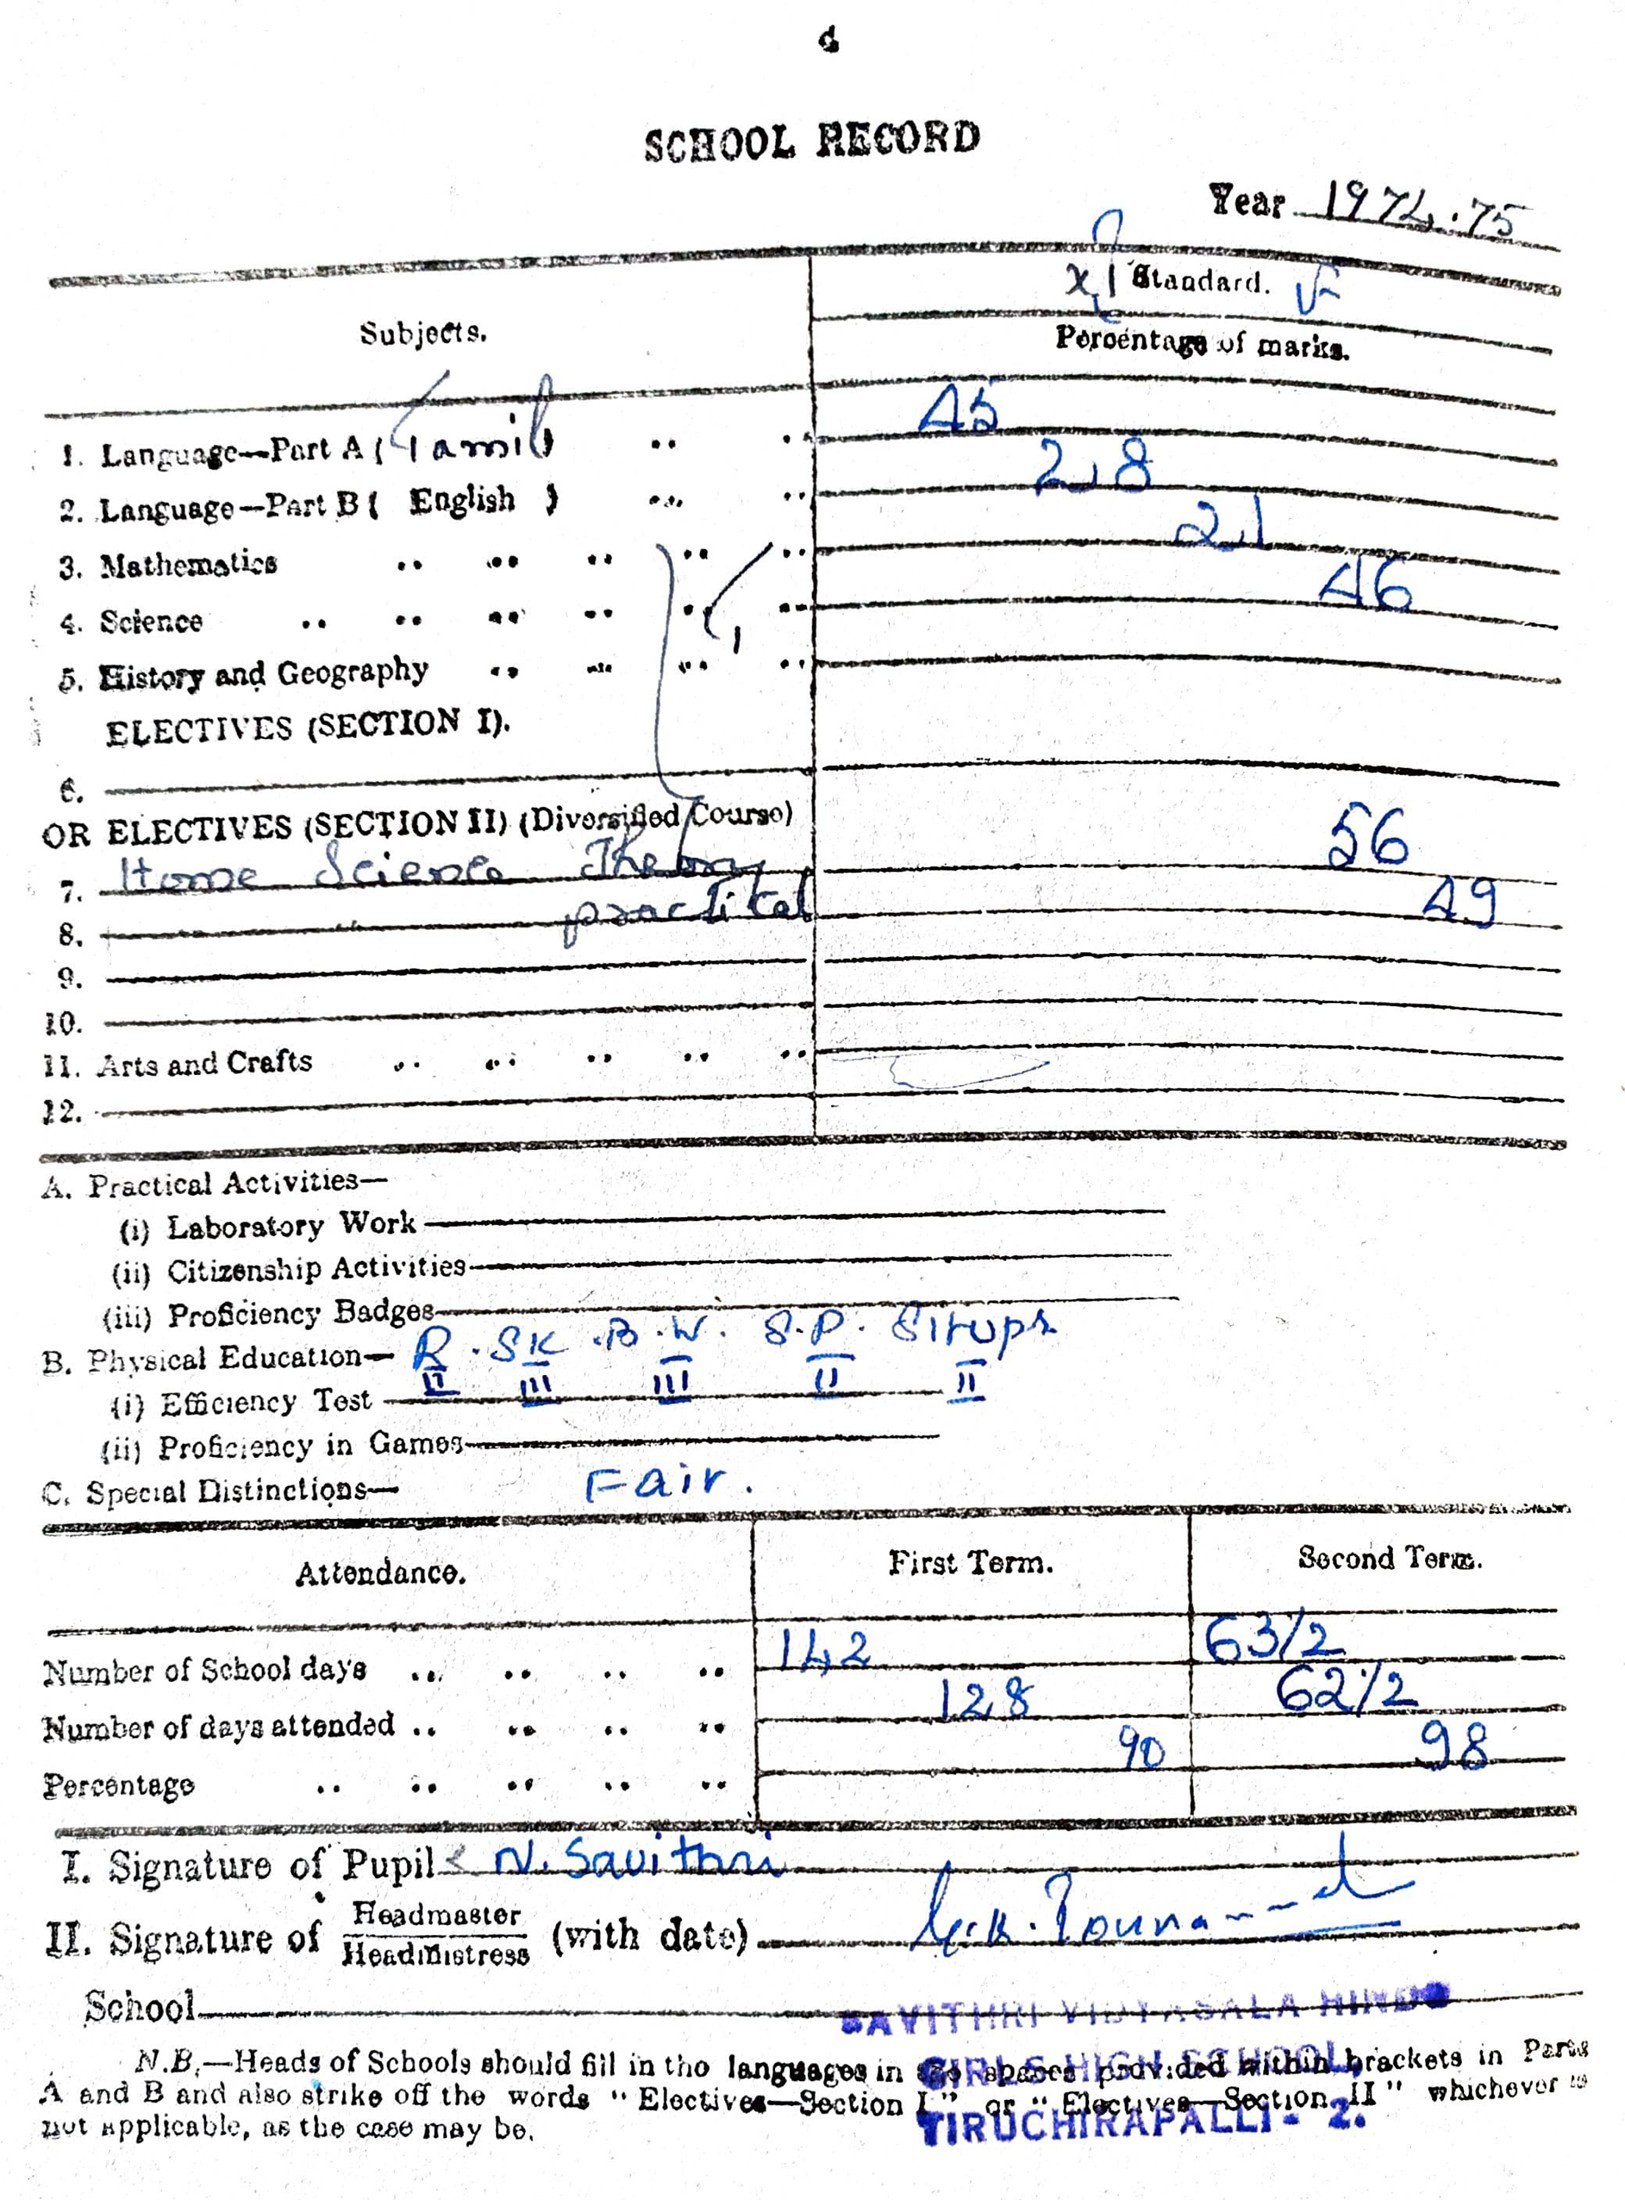 SCHOOL RECORD
Year 1974.75
Subjects.
XI Standard.
Percentage of marks.
1. Language—Part A ( Tamil ) .. .. 45
2. Language—Part B ( English ) .. .. 28
3. Mathematics .. .. .. .. .. 21
4. Science .. .. .. .. .. .. 46
5. History and Geography .. .. .. ..
ELECTIVES (SECTION I).
6.
OR ELECTIVES (SECTION II) (Diversified Course)
7. Home Science Theory 56
8. " " practical 49
9.
10.
11. Arts and Crafts .. .. .. .. ..
12.
A. Practical Activities—
(i) Laboratory Work
(ii) Citizenship Activities
(iii) Proficiency Badges
B. Physical Education— R . SK . B.W. S.P. Situps
(i) Efficiency Test II III III II II
(ii) Proficiency in Games
C. Special Distinctions— Fair.
Attendance. First Term. Second Term.
Number of School days .. .. .. .. 142 63/2
Number of days attended .. .. .. .. 128 62/2
Percentage .. .. .. .. .. 90 98
I. Signature of Pupil N. Savithri
II. Signature of Headmaster
Headmistress (with date)
School
SAVITHRI VIDYASALA HINDU
GIRLS HIGH SCHOOL,
TIRUCHIRAPALLI - 2.
N.B.—Heads of Schools should fill in the languages in the spaces provided within brackets in Parts
A and B and also strike off the words " Electives—Section I " or " Electives—Section II " whichever is
not applicable, as the case may be.